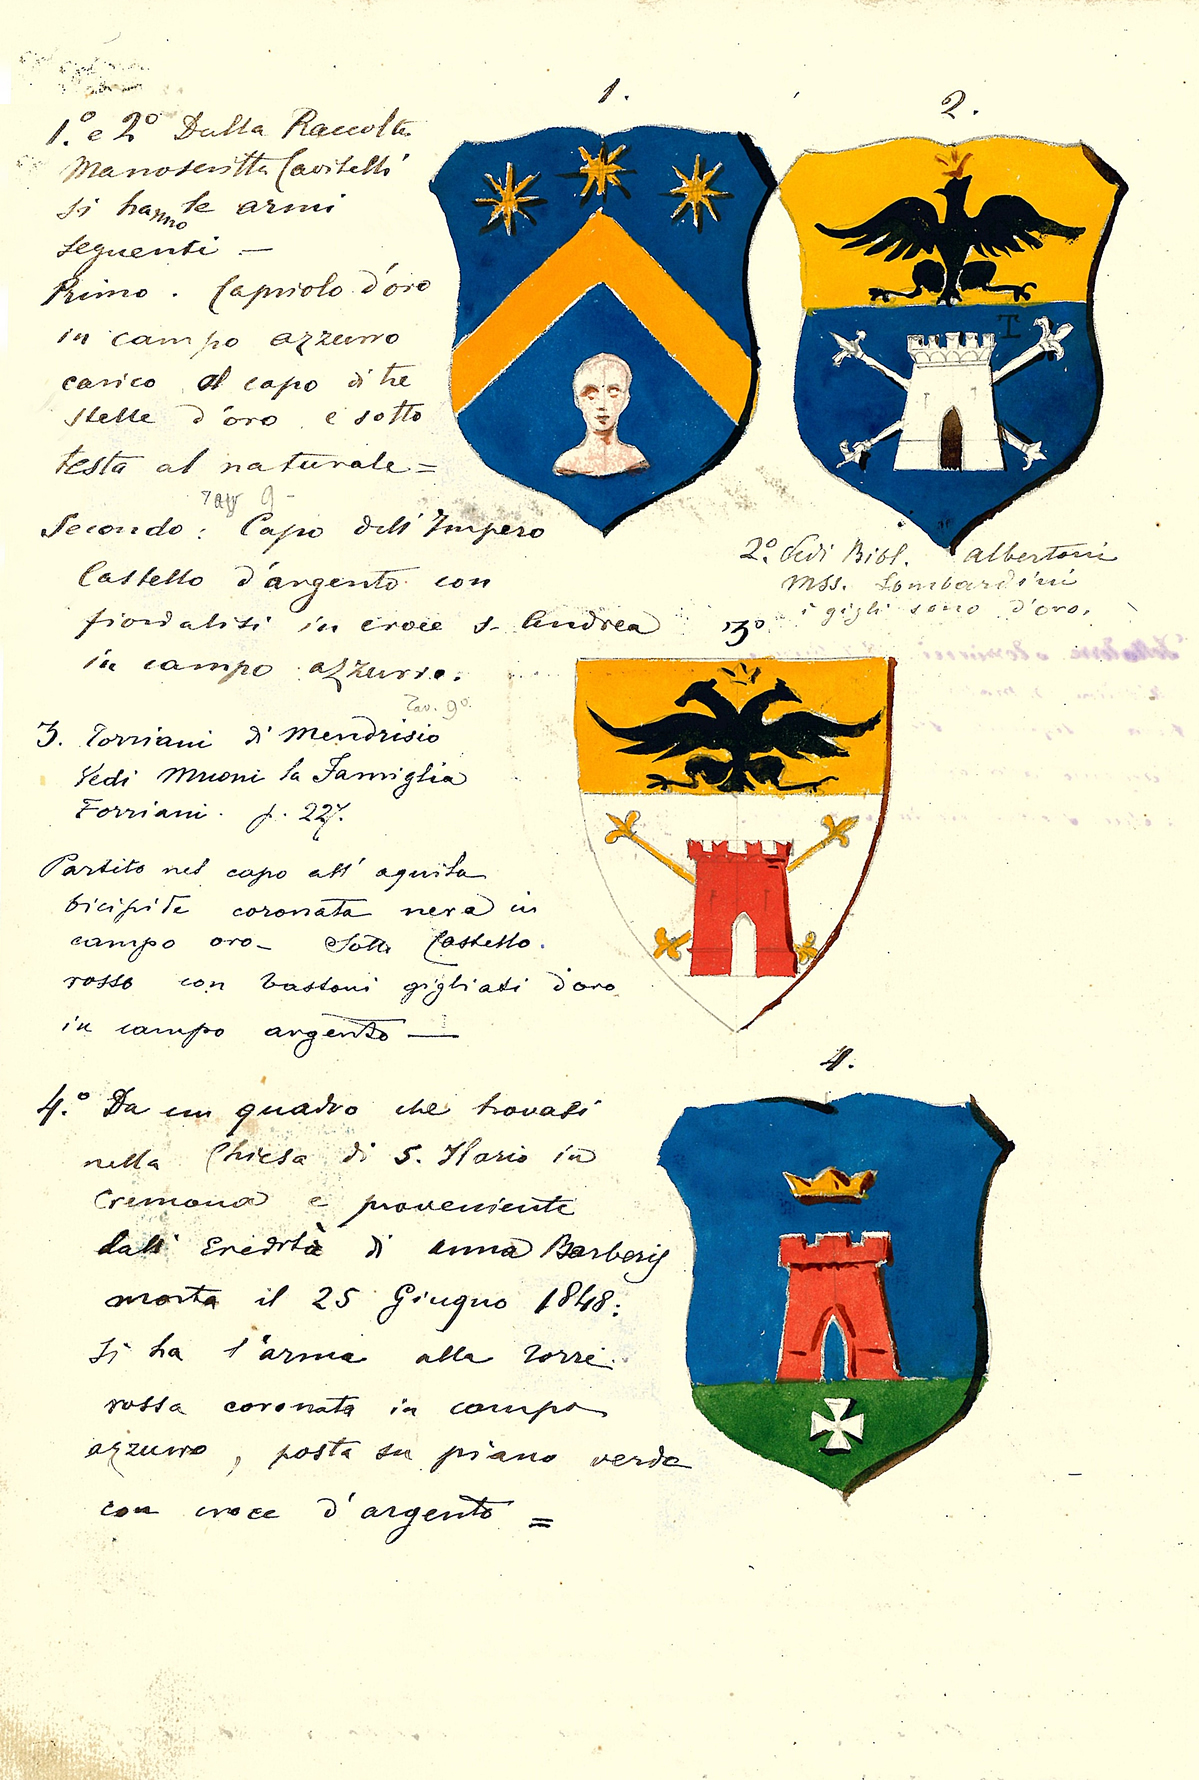 1.
2.
1.º e 2º Dalla Raccolta
Manoscritta Cavitelli
si hanno le armi
seguenti —
Primo. Capriolo d'oro
in campo azzurro
carico al capo di tre
stelle d'oro e sotto
testa al naturale =
Secondo: Capo dell'Impero
Castello d'argento con
fiordalisi in croce s. Andrea
in campo azzurro.
T
2º. Vedi Bibl. Albertoni
mss. Lombardini
i gigli sono d'oro.
3º
Tav. 9º.
3. Torriani di Mendrisio
Vedi Muoni la Famiglia
Torriani. p. 227.
Partito nel capo all'aquila
bicipite coronata nera in
campo oro — Sotto Castello
rosso con bastoni gigliati d'oro
in campo argento —
4.
4.º Da un quadro che trovasi
nella Chiesa di S. Ilario in
Cremona e proveniente
dall'Eredità di Anna Barberis
morta il 25 Giugno 1848:
si ha l'arma alla torre
rossa coronata in campo
azzurro, posta su piano verde
con croce d'argento =